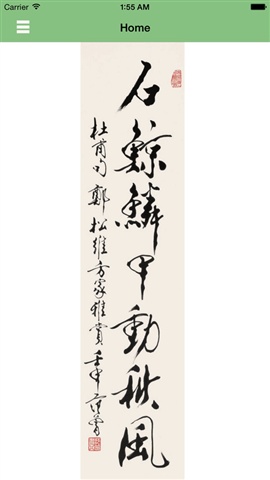 Carrier
1:55 AM
Home
石鯨鱗甲動秋風
杜甫句 鄭松維方家雅賞 壬申 范曾